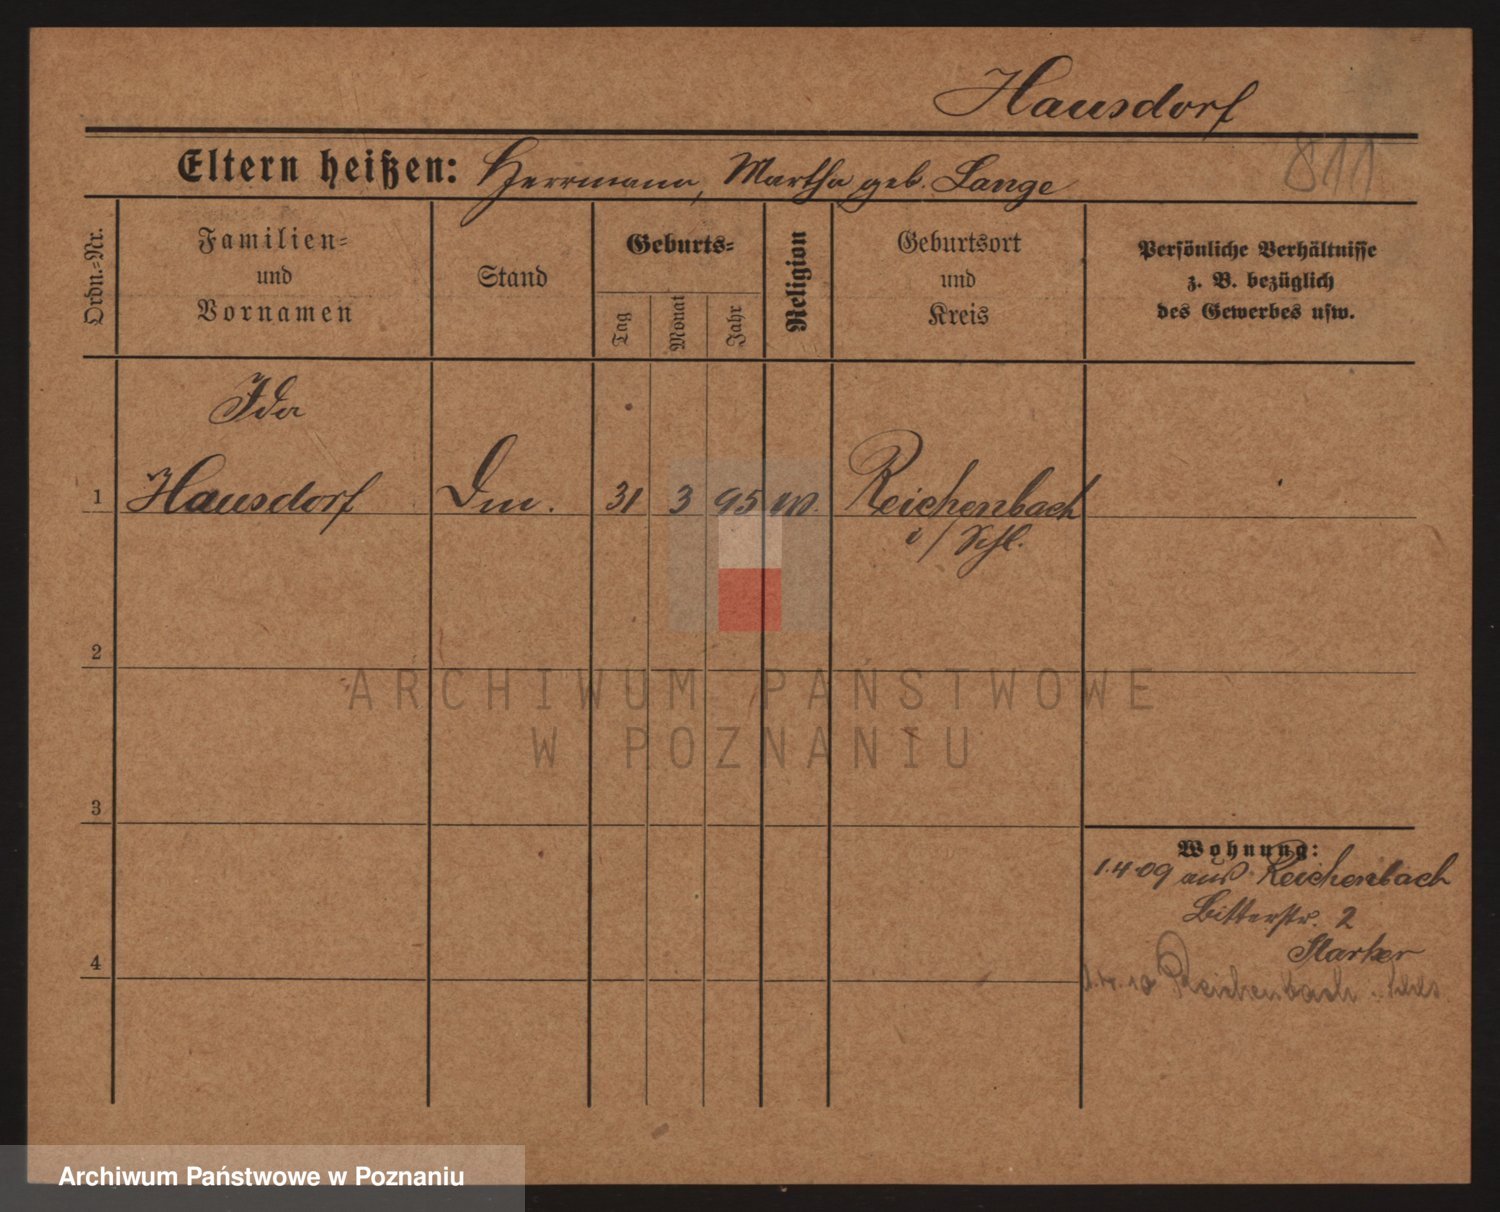 Hausdorf
811
Eltern heißen: Herrmann, Martha geb. Lange
Ordn.-Nr.
Familien-
und
Vornamen
Stand
Geburts-
Tag
Monat
Jahr
Religion
Geburtsort
und
Kreis
Persönliche Verhältnisse
z. B. bezüglich
des Gewerbes usw.
Ida
1 Hausdorf Dm. 31 3 95 Reichenbach
i/Schl.
2
3
4
Wohnung:
1.4.09 aus Reichenbach
Bitterstr. 2
Starker
Reichenbach
ARCHIWUM PAŃSTWOWE
W POZNANIU
Archiwum Państwowe w Poznaniu